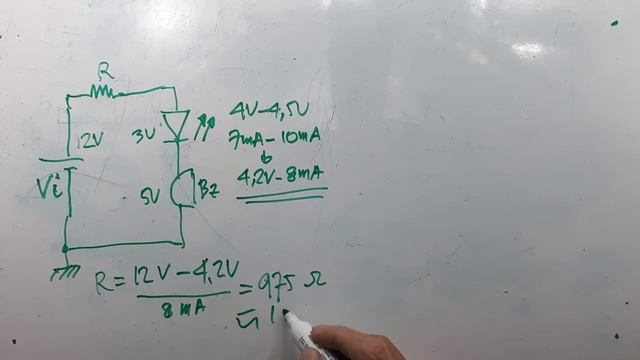 R
12V
Vi
3V
5V
Bz
4V-4,5V
7mA-10mA
4,2V-8mA
R = 12V - 4,2V / 8mA = 975 Ω
≅ 1